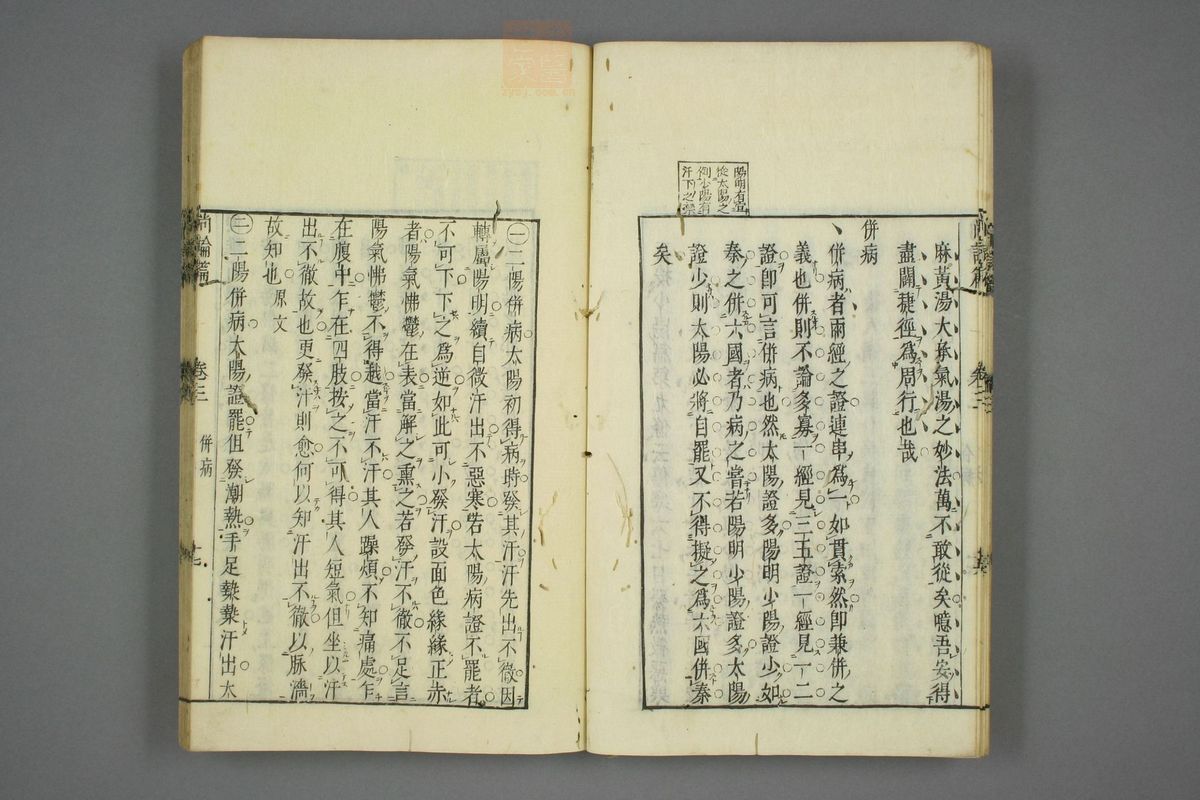 陽明有宜
從太陽之
例少陽有
汗下之禁
麻黃湯大承氣湯之妙法萬不敢從矣噫吾安得
盡闢捷徑爲周行也哉
併病
併病者兩經之證連串爲一如貫索然卽兼併之
義也併則不論多寡一經見三五證一經見一二
證卽可言併病也然太陽證多陽明少陽證少如
秦之併六國者乃病之常若陽明少陽證多太陽
證少則太陽必將自罷又不得擬之爲六國併秦
矣
一二陽併病太陽初得病時發其汗汗先出不徹因
轉屬陽明續自微汗出不惡寒若太陽病證不罷者
不可下下之爲逆如此可小發汗設面色緣緣正赤
者陽氣怫鬱在表當解之熏之若發汗不徹不足言
陽氣怫鬱不得越當汗不汗其人躁煩不知痛處乍
在腹中乍在四肢按之不可得其人短氣但坐以汗
出不徹故也更發汗則愈何以知汗出不徹以脉濇
故知也 原文
二二陽併病太陽證罷但發潮熱手足漐漐汗出大
尚論篇 卷三 併病 十七
zysj.com.cn